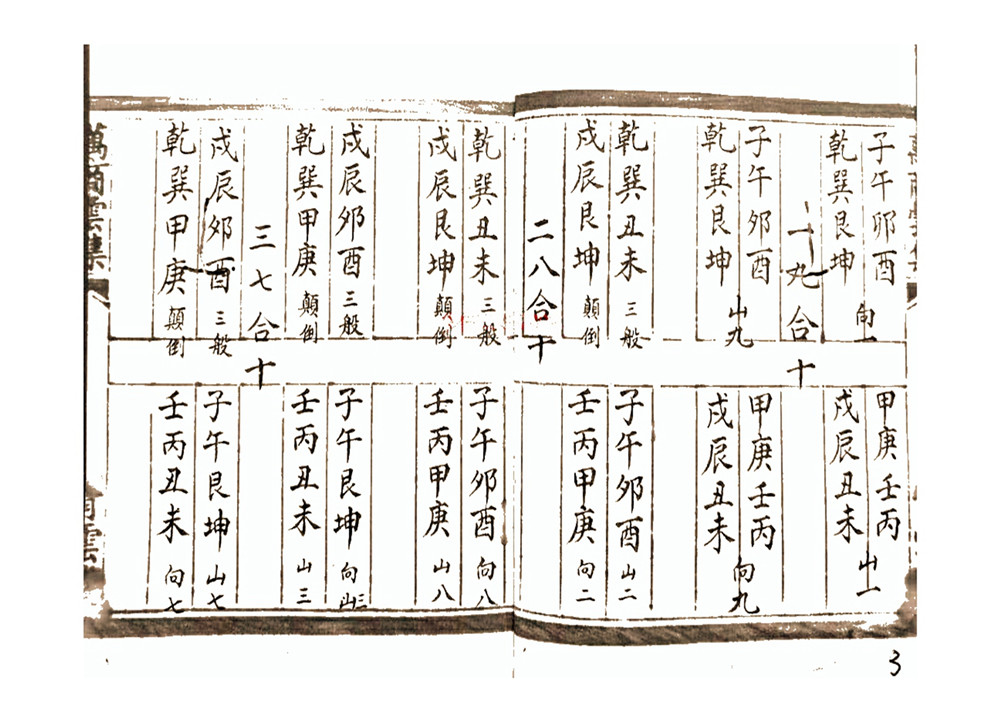 子午卯酉
乾巽艮坤
向一
甲庚壬丙
戍辰丑未
山一
一九合十
子午卯酉
乾巽艮坤
山九
甲庚壬丙
戍辰丑未
向九
乾巽丑未 三般
子午卯酉 山二
戍辰艮坤 顛倒
壬丙甲庚 向二
二八合十
乾巽丑未 三般
子午卯酉 向八
戍辰艮坤 顛倒
壬丙甲庚 山八
戍辰卯酉 三般
子午艮坤 向三
乾巽甲庚 顛倒
壬丙丑未 山三
三七合十
戍辰卯酉 三般
子午艮坤 山七
乾巽甲庚 顛倒
壬丙丑未 向七
萬 雲集
雲
3